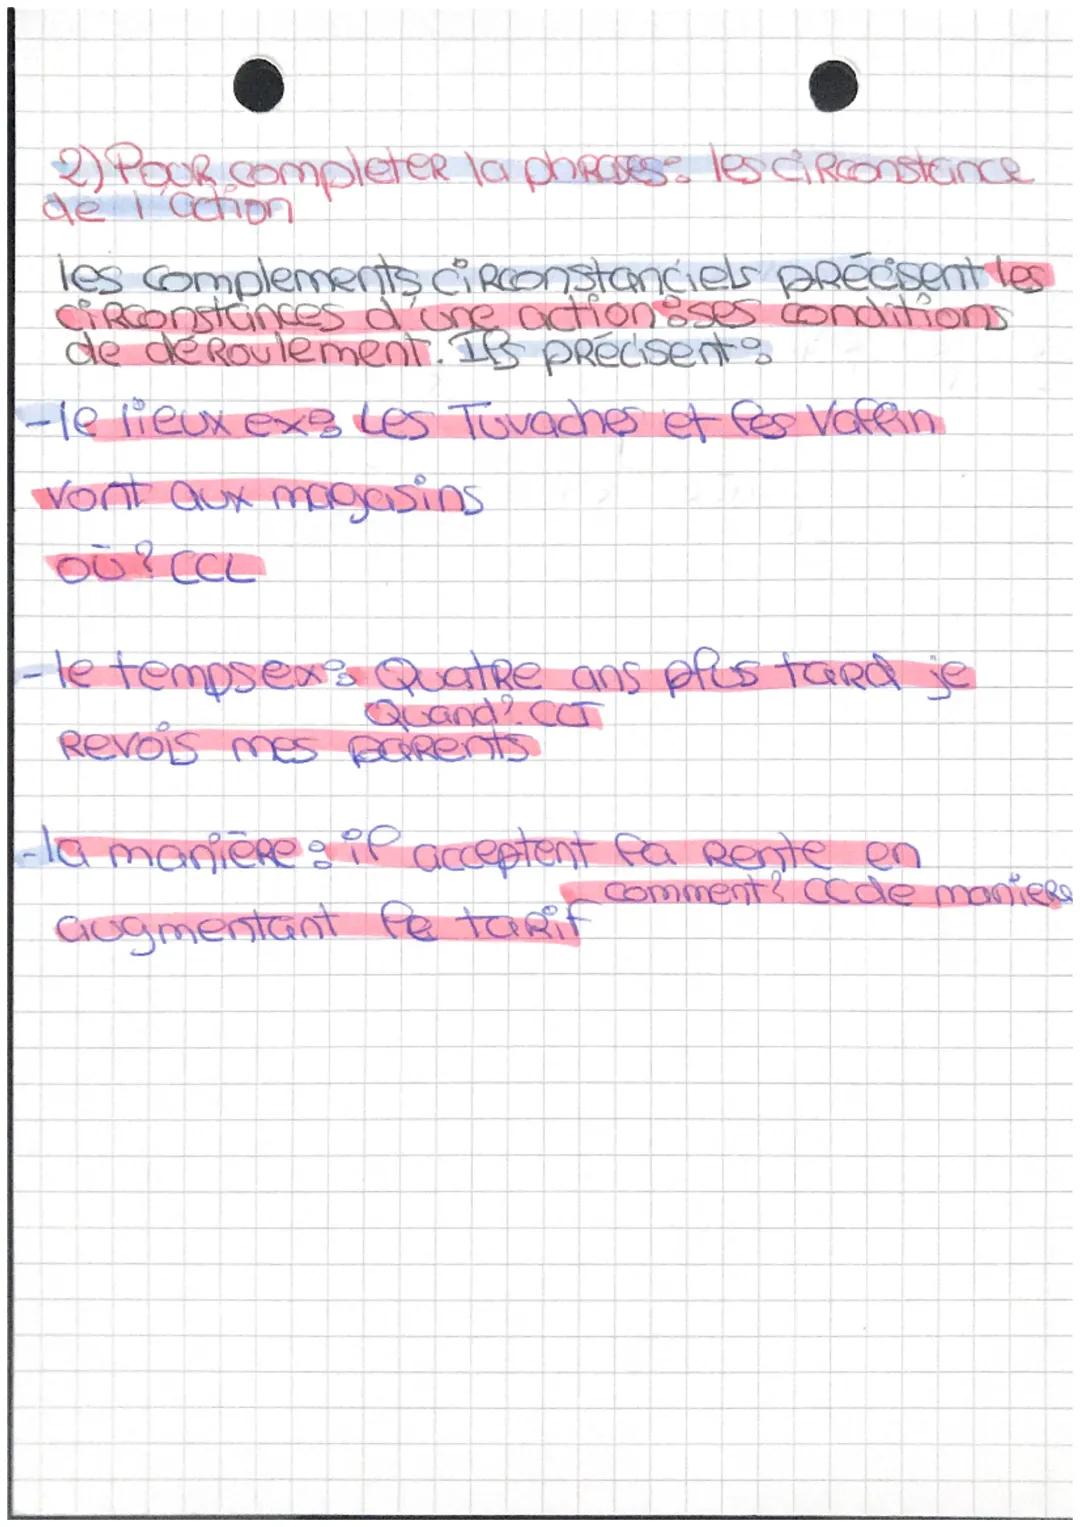 2) Pour completer la phrases: les circonstance
de l'action
les complements circonstanciels précisent les
circonstances d'une action : ses conditions
de déroulement. Ils précisent :
- le lieux ex: Les Tuvaches et les Vallin
vont aux magasins
où? CCL
- le temps ex: Quatre ans plus tard je
Quand? CCT
revois mes parents
- la manière : il acceptent la rente en
comment? CC de maniere
augmentant le tarif